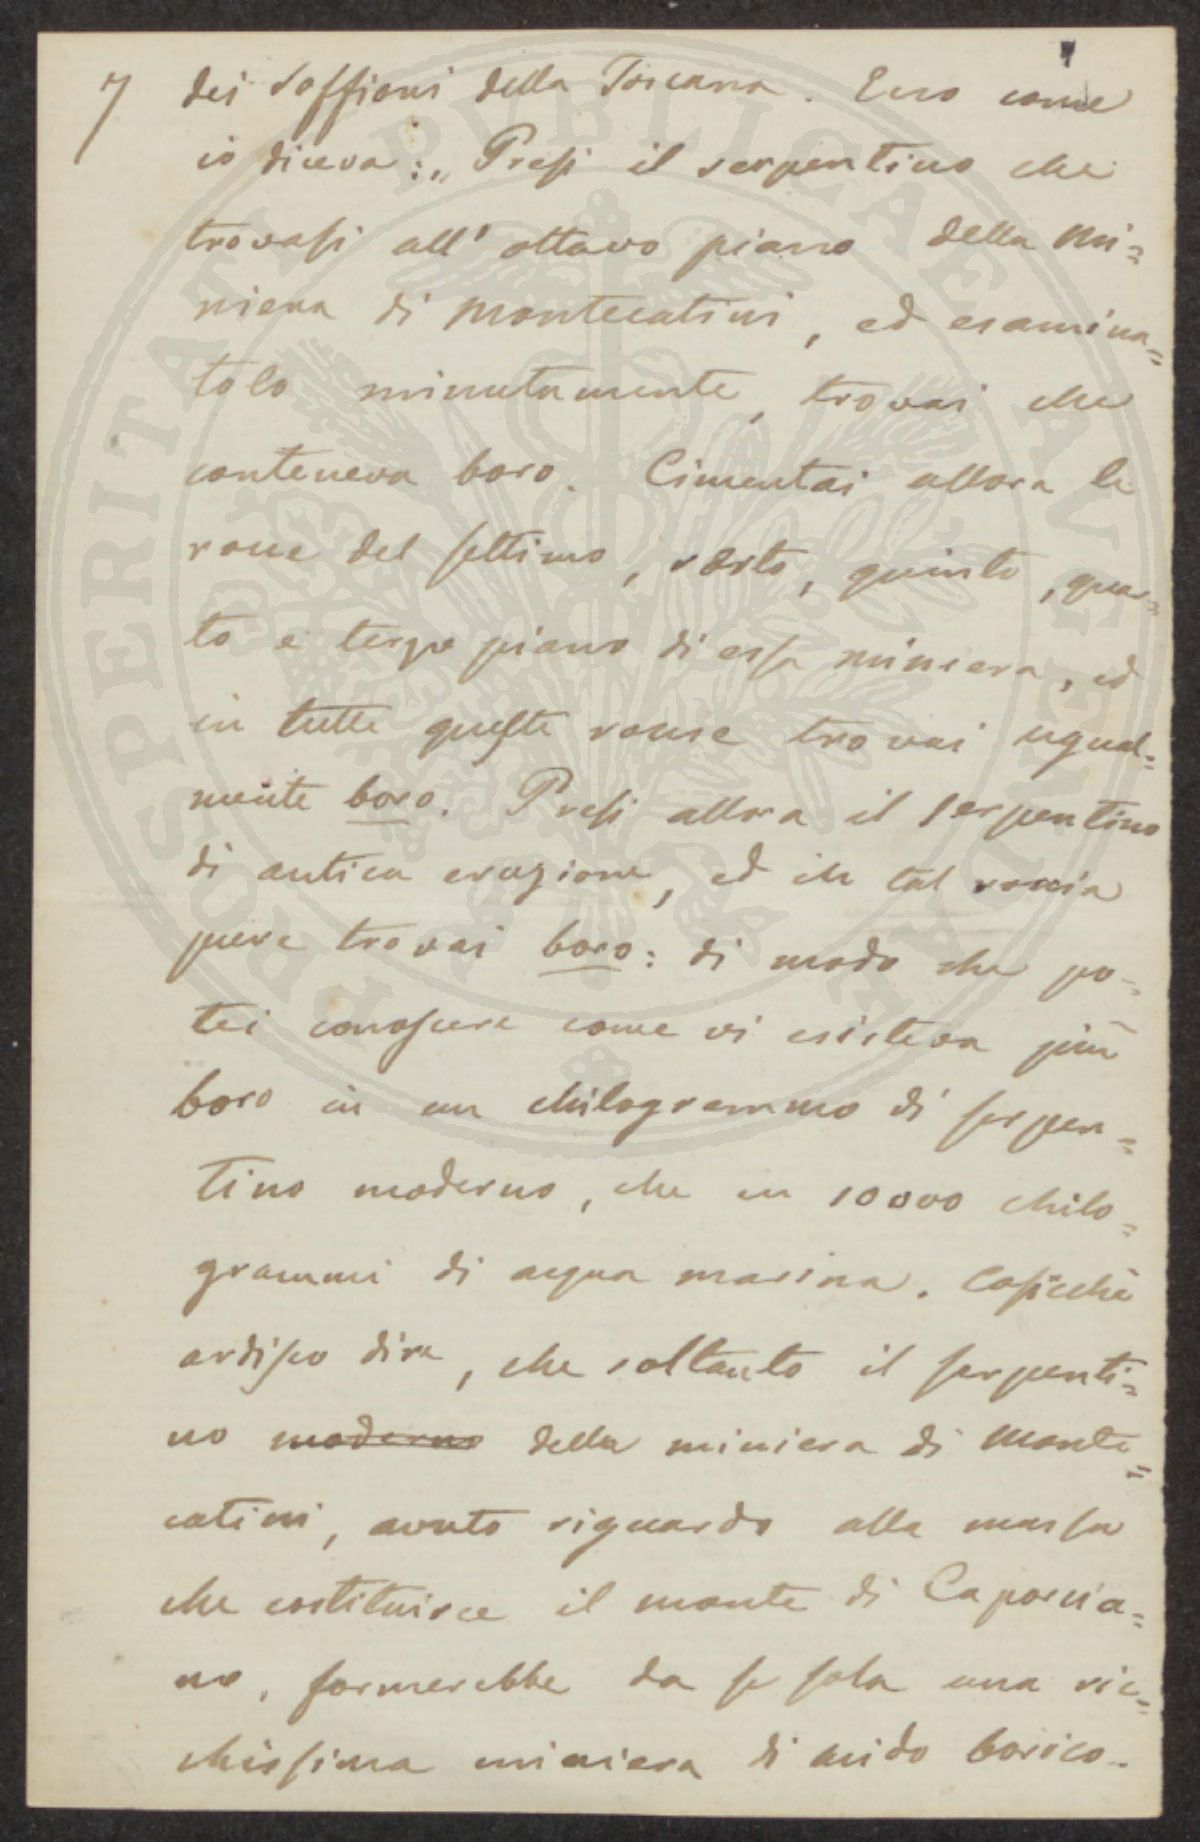 7 dei Soffioni della Toscana. Ecco come
io diceva: „ Presi il serpentino che
trovasi all' ottavo piano della Mi=
niera di Montecatini, ed esamina=
tolo minutamente, trovai che
conteneva boro. Cimentai allora le
rocce del settimo, sesto, quinto, quar=
to e terzo piano di essa miniera, ed
in tutte queste rocce trovai ugual=
mente boro. Presi allora il serpentino
di antica eruzione, ed in tal roccia
pure trovai boro: di modo che po-
tei conoscere come vi esisteva più
boro in un chilogrammo di serpen=
tino moderno, che in 10000 chilo=
grammi di acqua marina. Cosicchè
ardisco dire, che soltanto il serpenti=
no moderno della miniera di Monte=
catini, avuto riguardo alla massa
che costituisce il monte di Caporcia=
no, formerebbe da se sola una ric=
chissima miniera di acido borico.
PROSPERITATI PUBLICAE AUGENDAE